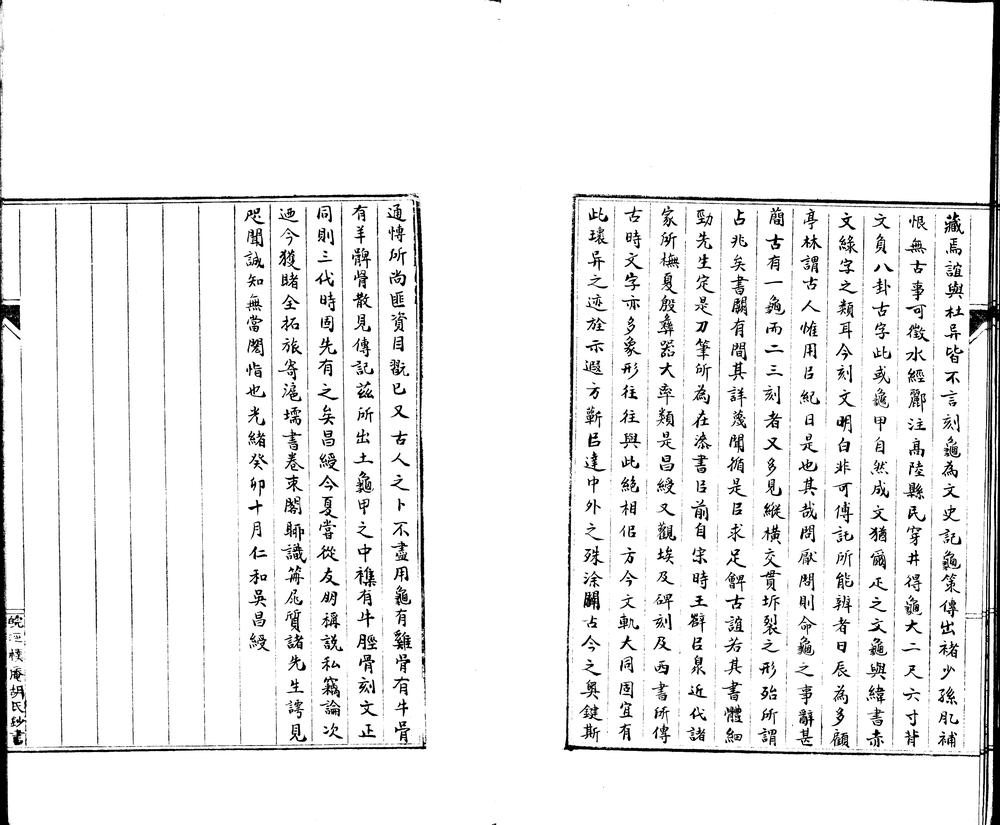 藏焉誼與杜异皆不言刻龜為文史記龜策傳出褚少孫肊補
恨無古事可徵水經酈注高陸縣民穿井得龜大二尺六寸背
文負八卦古字此或龜甲自然成文猶爾疋之文龜與緯書赤
文綠字之類耳今刻文明白非可傅託所能辨者日辰為多顧
亭林謂古人惟用㠯紀日是也其哉問厭問則命龜之事辭甚
蕳古有一龜而二三刻者又多見縱横交貫坼裂之形殆所謂
占兆矣書闕有間其詳蔑聞循是㠯求足觶古誼若其書體細
勁先生定是刀筆所為在漆書㠯前自宋時王辥㠯泉近代諸
家所橅夏殷彝器大率類是昌綬又觀埃及碑刻及西書所傳
古時文字亦多象形往往與此絶相佀方今文軌大同固宜有
此瓌异之迹旌示遐方蘄㠯達中外之殊涂闢古今之奥鍵斯
通愽所尚匪資目翫已又古人之卜不盡用龜有雞骨有牛骨
有羊髀骨散見傳記茲所出土龜甲之中襍有牛脛骨刻文正
同則三代時固先有之矣昌綬今夏嘗從友朋稱説私竊論次
迺今獲睹全拓旅寄滬壖書卷束閣聊識簡凥質諸先生謣見
咫聞誠知無當閎恉也光緒癸卯十月仁和吳昌綬
皖涇樸庵胡氏鈔書